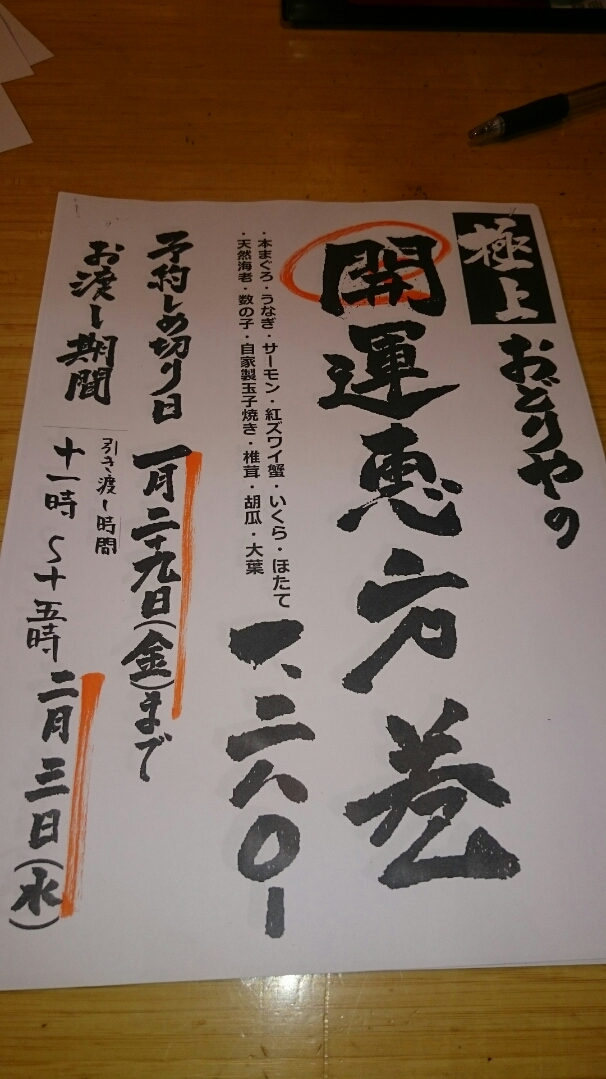 極上
おどりやの
開運恵方巻
・本まぐろ・うなぎ・サーモン・紅ズワイ蟹・いくら・ほたて
・天然海老・数の子・自家製玉子焼き・椎茸・胡瓜・大葉
一、二八〇ー
予約しめ切り日 一月二十九日(金)まで
お渡し期間 二月三日(水)
引き渡し時間
十一時～十五時